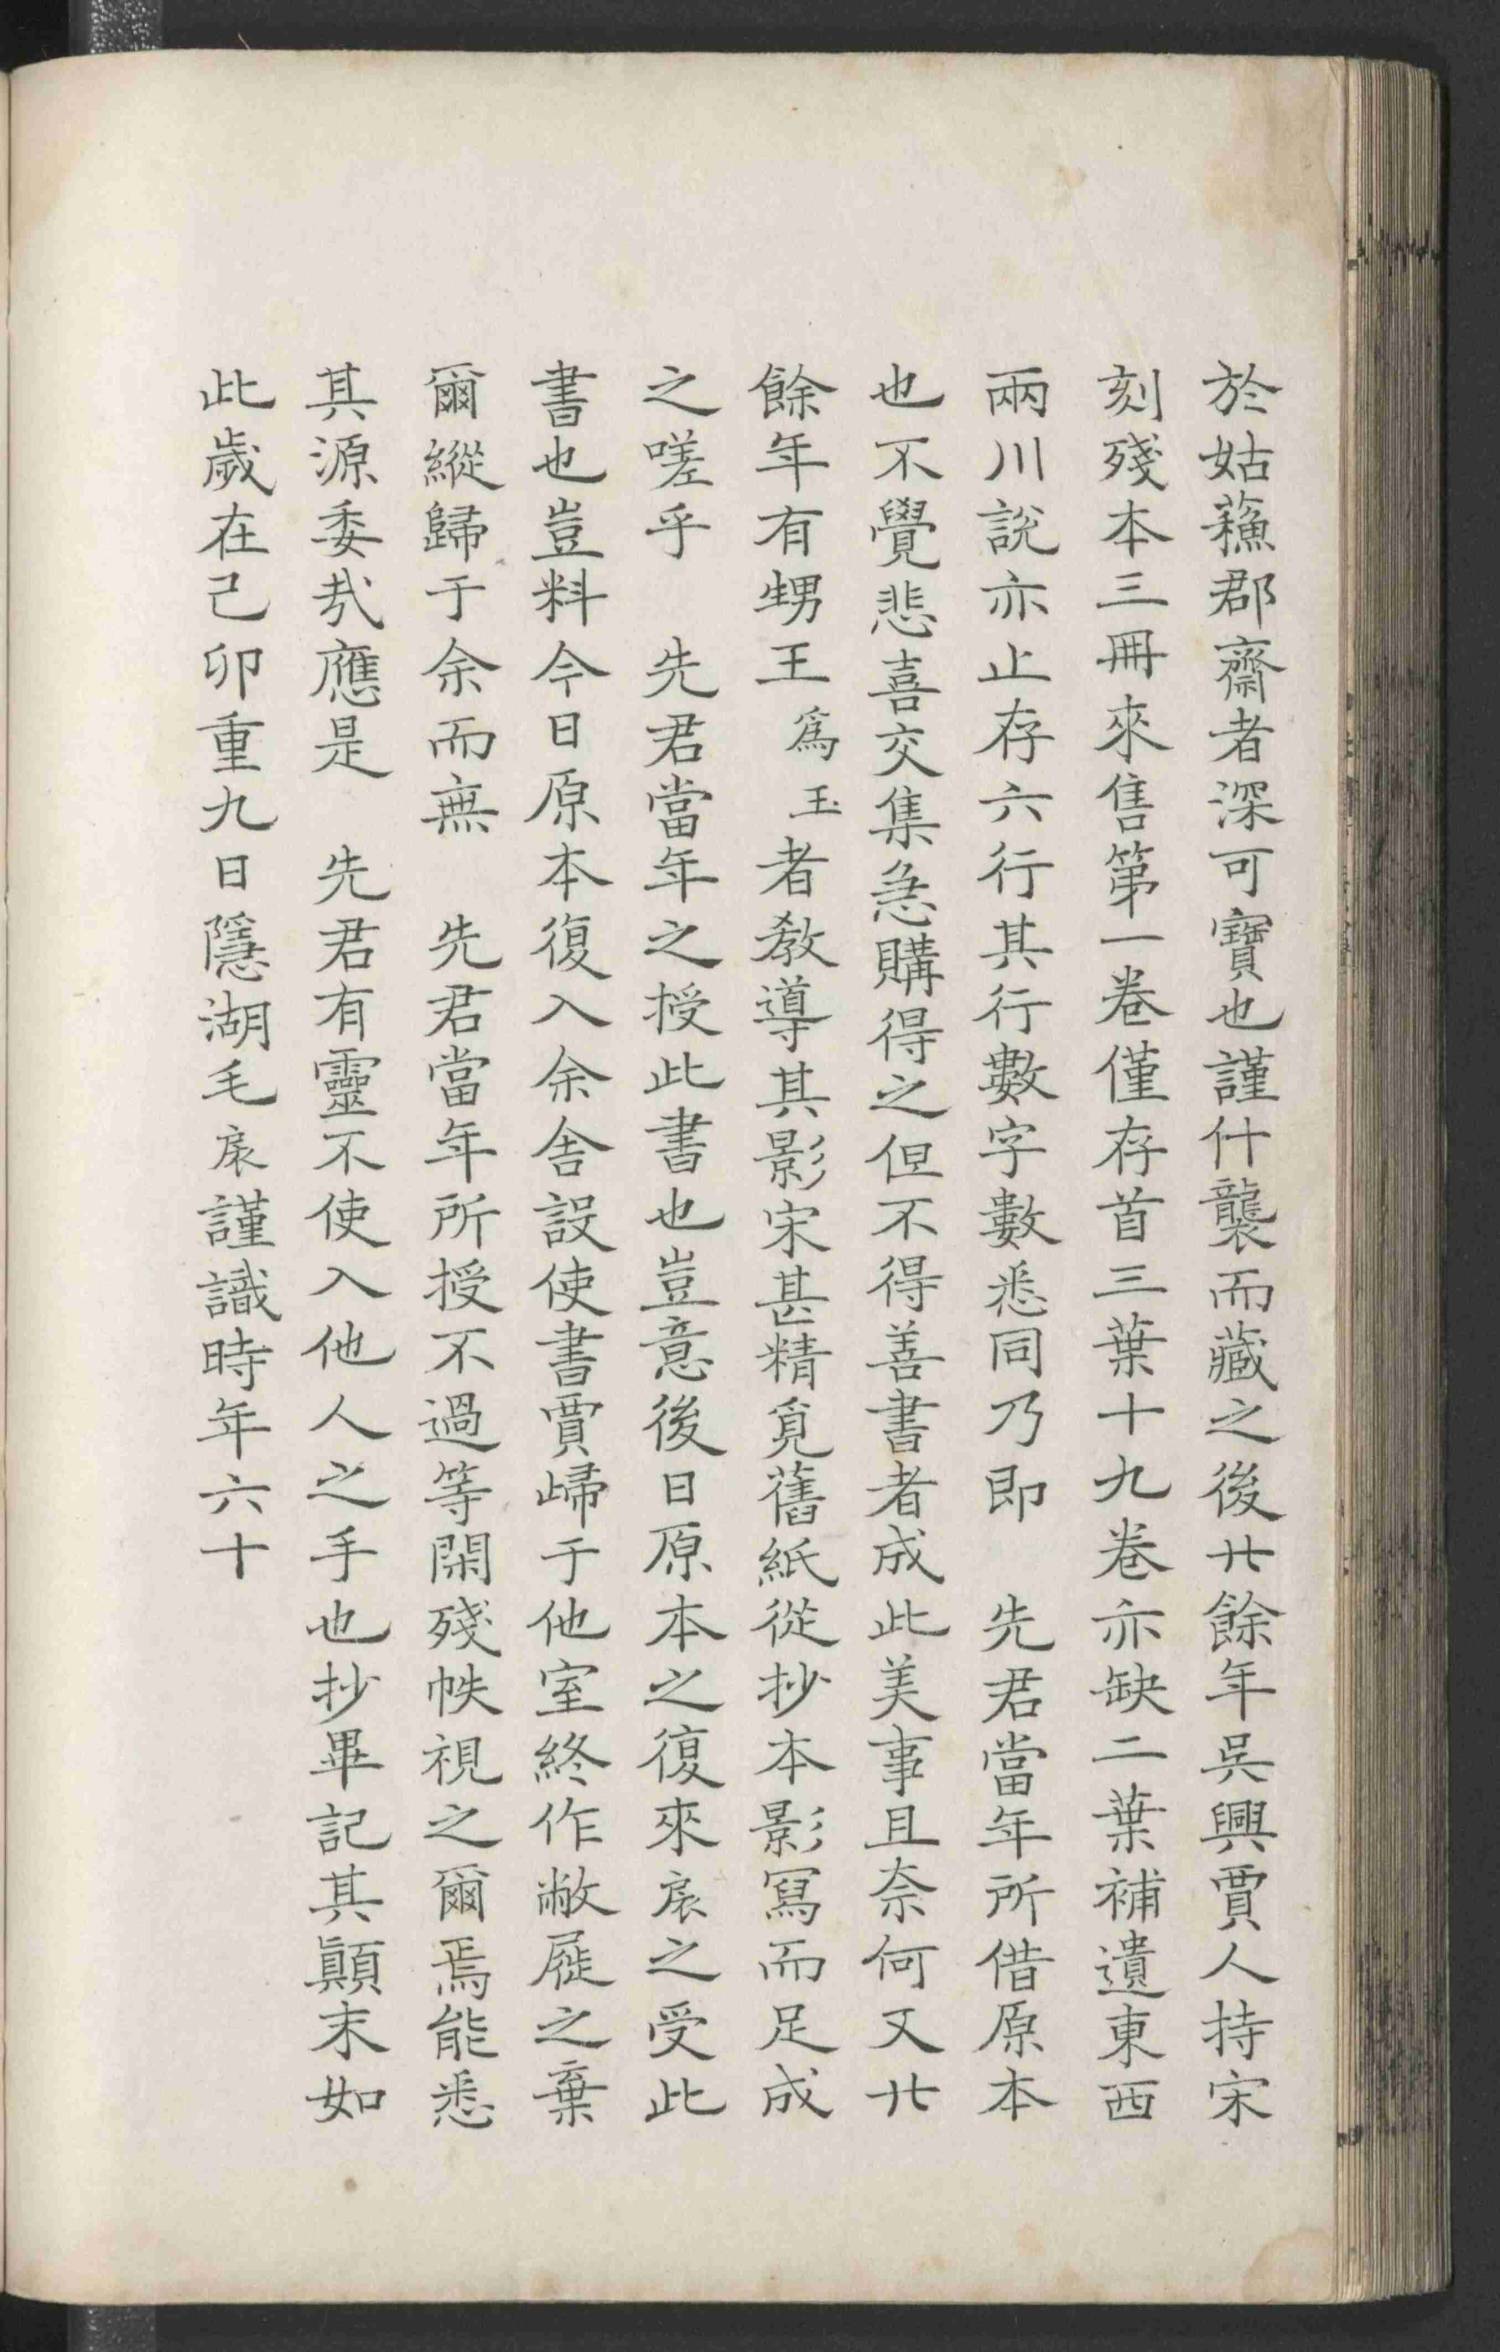 於姑蘓郡齋者深可寶也謹什襲而藏之後廿餘年吳興賈人持宋
刻殘本三冊來售第一卷僅存首三葉十九卷亦缺二葉補遺東西
兩川說亦止存六行其行數字數悉同乃即　先君當年所借原本
也不覺悲喜交集急購得之但不得善書者成此美事且奈何又廿
餘年有甥王為玉者教導其影宋甚精覓舊紙從抄本影寫而足成
之嗟乎　先君當年之授此書也豈意後日原本之復來扆之受此
書也豈料今日原本復入余舍設使書賈歸于他室終作敝屣之棄
爾縱歸于余而無　先君當年所授不過等閑殘帙視之爾焉能悉
其源委㢤應是　先君有靈不使入他人之手也抄畢記其顛末如
此歲在己卯重九日隱湖毛扆謹識時年六十